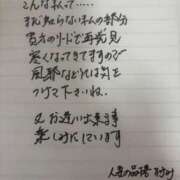 こんなわんて....
まだ知らないわんの部分
貴方のリードで再発見
寒くなってきてますので
風邪などには気を
つけて下さいね。
又お逢い出来る事
楽しみにしています
人妻の品格